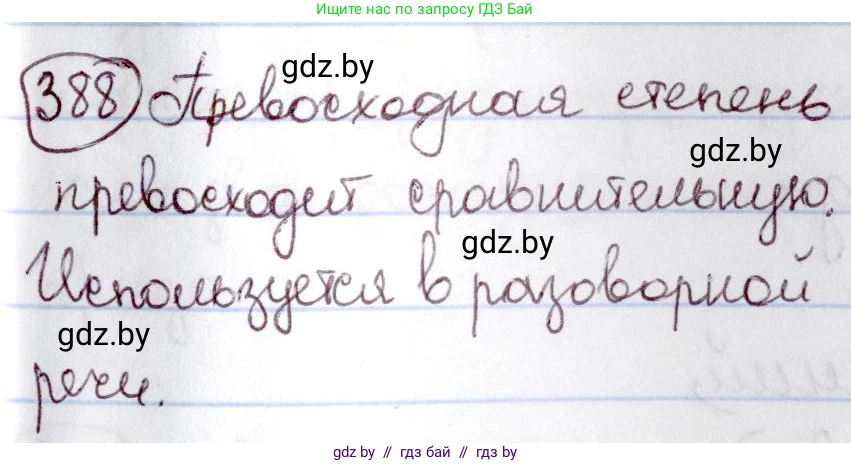 Ищите нас по запросу ГДЗ Бай
gdz.by
388 Превосходная степень
gdz.by
превосходит сравнительную.
gdz.by
Используется в разоворной
gdz.by
речи.
gdz by // гдз бай // gdz by